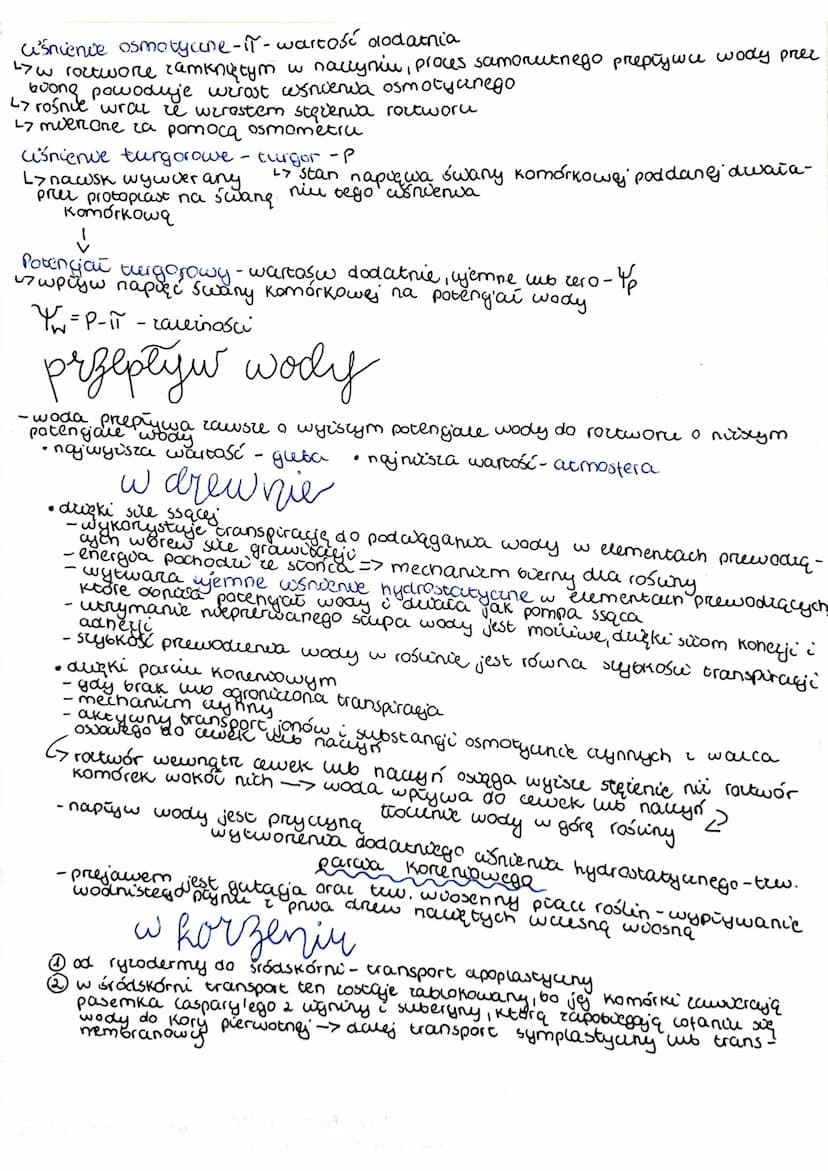 ciśnienie osmotyczne - π - wartość dodatnia
↳ w roztworze zamkniętym w naczyniu, proces samorzutnego przepływu wody przez
błonę powoduje wzrost ciśnienia osmotycznego
↳ rośnie wraz ze wzrostem stężenia roztworu
↳ mierzone za pomocą osmometru
ciśnienie turgorowe - turgor - P
↳ nacisk wywierany
przez protoplast na ścianę
komórkową
↳ stan napięcia ściany komórkowej poddanej działa-
niu tego ciśnienia
↓
Potencjał turgorowy - wartości dodatnie, ujemne lub zero - Ψp
↳ wpływ napięć ściany komórkowej na potencjał wody
Ψw = P - π - zależności
przepływ wody
- woda przepływa zawsze o wyższym potencjale wody do roztworu o niższym
potencjale wody
• najwyższa wartość - gleba • najniższa wartość - atmosfera
w drewnie
• dzięki sile ssącej
- wykorzystuje transpirację do podciągania wody w elementach przewodzą-
cych wbrew sile grawitacji
- energia pochodzi ze słońca => mechanizm bierny dla rośliny
- wytwarza ujemne ciśnienie hydrostatyczne w elementach przewodzących,
które obniża potencjał wody i działa jak pompa ssąca
- utrzymanie nieprzerwanego słupa wody jest możliwe, dzięki siłom kohezji i
adhezji
- szybkość przewodzenia wody w roślinie jest równa szybkości transpiracji
• dzięki parciu korzeniowym
- gdy brak lub ograniczona transpiracja
- mechanizm czynny
- aktywny transport jonów i substancji osmotycznie czynnych z walca
osiowego do cewek lub naczyń
↳ roztwór wewnątrz cewek lub naczyń osiąga wyższe stężenie niż roztwór
komórek wokół nich → woda wpływa do cewek lub naczyń
tłoczenie wody w górę rośliny
- napływ wody jest przyczyną
wytworzenia dodatniego ciśnienia hydrostatycznego - tzw.
parcia korzeniowego
- przejawem jest gutacja oraz tzw. wiosenny płacz roślin - wypływanie
wodnistego płynu z pnia drzew naciętych wczesną wiosną
w korzeniu
① od ryzodermy do śródskórni - transport apoplastyczny
② w śródskórni transport ten zostaje zablokowany, bo jej komórki zawierają
pasemka Caspary'ego z ligniny i suberyny, którą zapobiegają cofaniu się
wody do kory pierwotnej → dalej transport symplastyczny lub trans-
membranowy